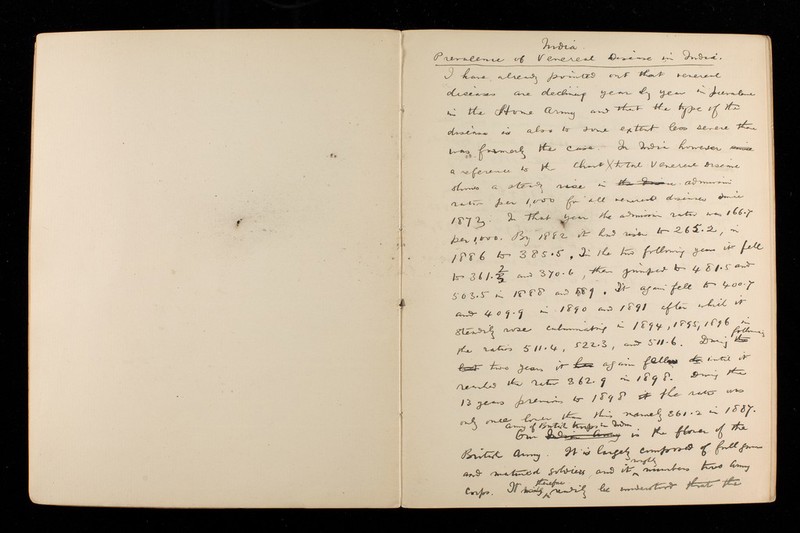 India.
Prevalence of Venereal Disease in India.
I have already pointed out that venereal
diseases are declining year by year in prevalence
in the Home Army and that the type of the
disease is also to some extent less severe than
was formerly the case. In India however
a reference to the Chart X total Venereal Disease
shows a steady rise in the admission
ratio per 1,000 for all venereal diseases since
1873. In that year the admission ratio was 166.7
per 1,000. By 1882 it had risen to 265.2, in
1886 to 385.5. In the two following years it fell
to 361. and 370.6, then jumped to 481.5 and
503.5 in 1888 and 1889. It again fell to 400.7
and 409.9 in 1890 and 1891 after which it
steadily rose culminating in 1894, 1895, 1896 in
the ratios 511.4, 522.3, and 511.6. During the following
two years it again fell until it
reached the ratio 362.9 in 1898. During the
13 years previous to 1898 the ratio was
only once lower than this namely 361.2 in 1887.
Our army of British troops in India is the flower of the
British Army. It is largely composed of full grown
and matured soldiers and it numbers two Army
Corps. It therefore readily be understood that the